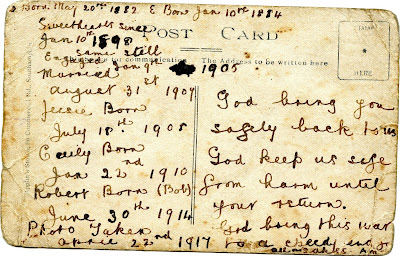 Born May 20th 1882 E Born Jan 10th 1884
Sweethearts since
Jan 10th 1898
same still
POST CARD
Engaged Jan 9th 1905
for communication. The Address to be written here
Married
August 31st 1907
Jessie Born
July 18th 1908
Cecily Born
Jan 22nd 1910
Robert Born (Bob)
June 30th 1914
Photo Taken
april 22nd 1917
STAMP
HERE
God bring you
safely back to us
God keep us safe
from harm until
your return.
God bring this war
to a speedy end